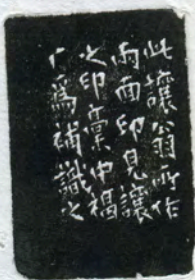 此讓翁所作
兩面印見讓
之印稾中福
厂爲補識之